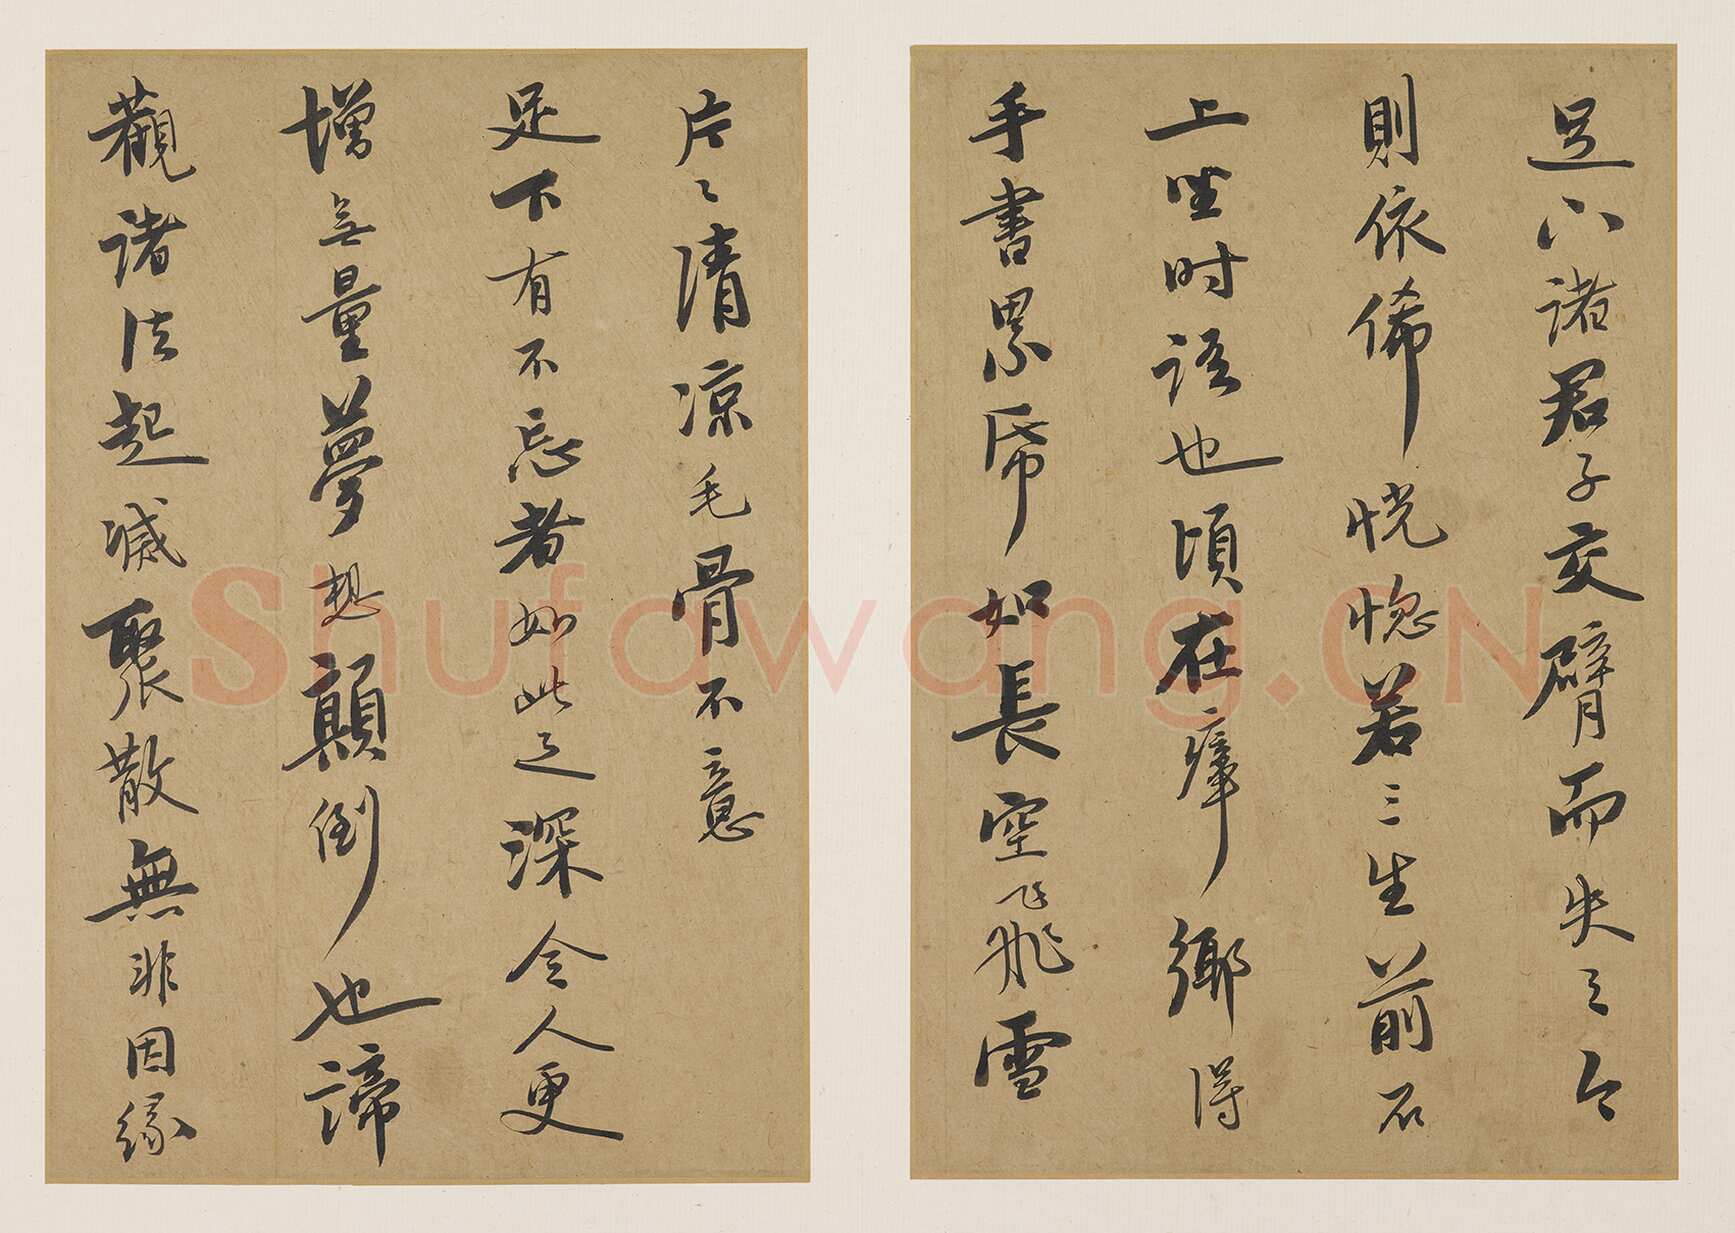 足下諸君子交臂而失之今
則依俙恍惚若三生前石
上坐時語也頃在瘴鄉得
手書累帋如長空飛雪
片〻清凉毛骨不意
足下有不忘者如此之深令人更
增無量夢想顛倒也諦
觀諸法起滅聚散無非因緣
Shufawang.CN